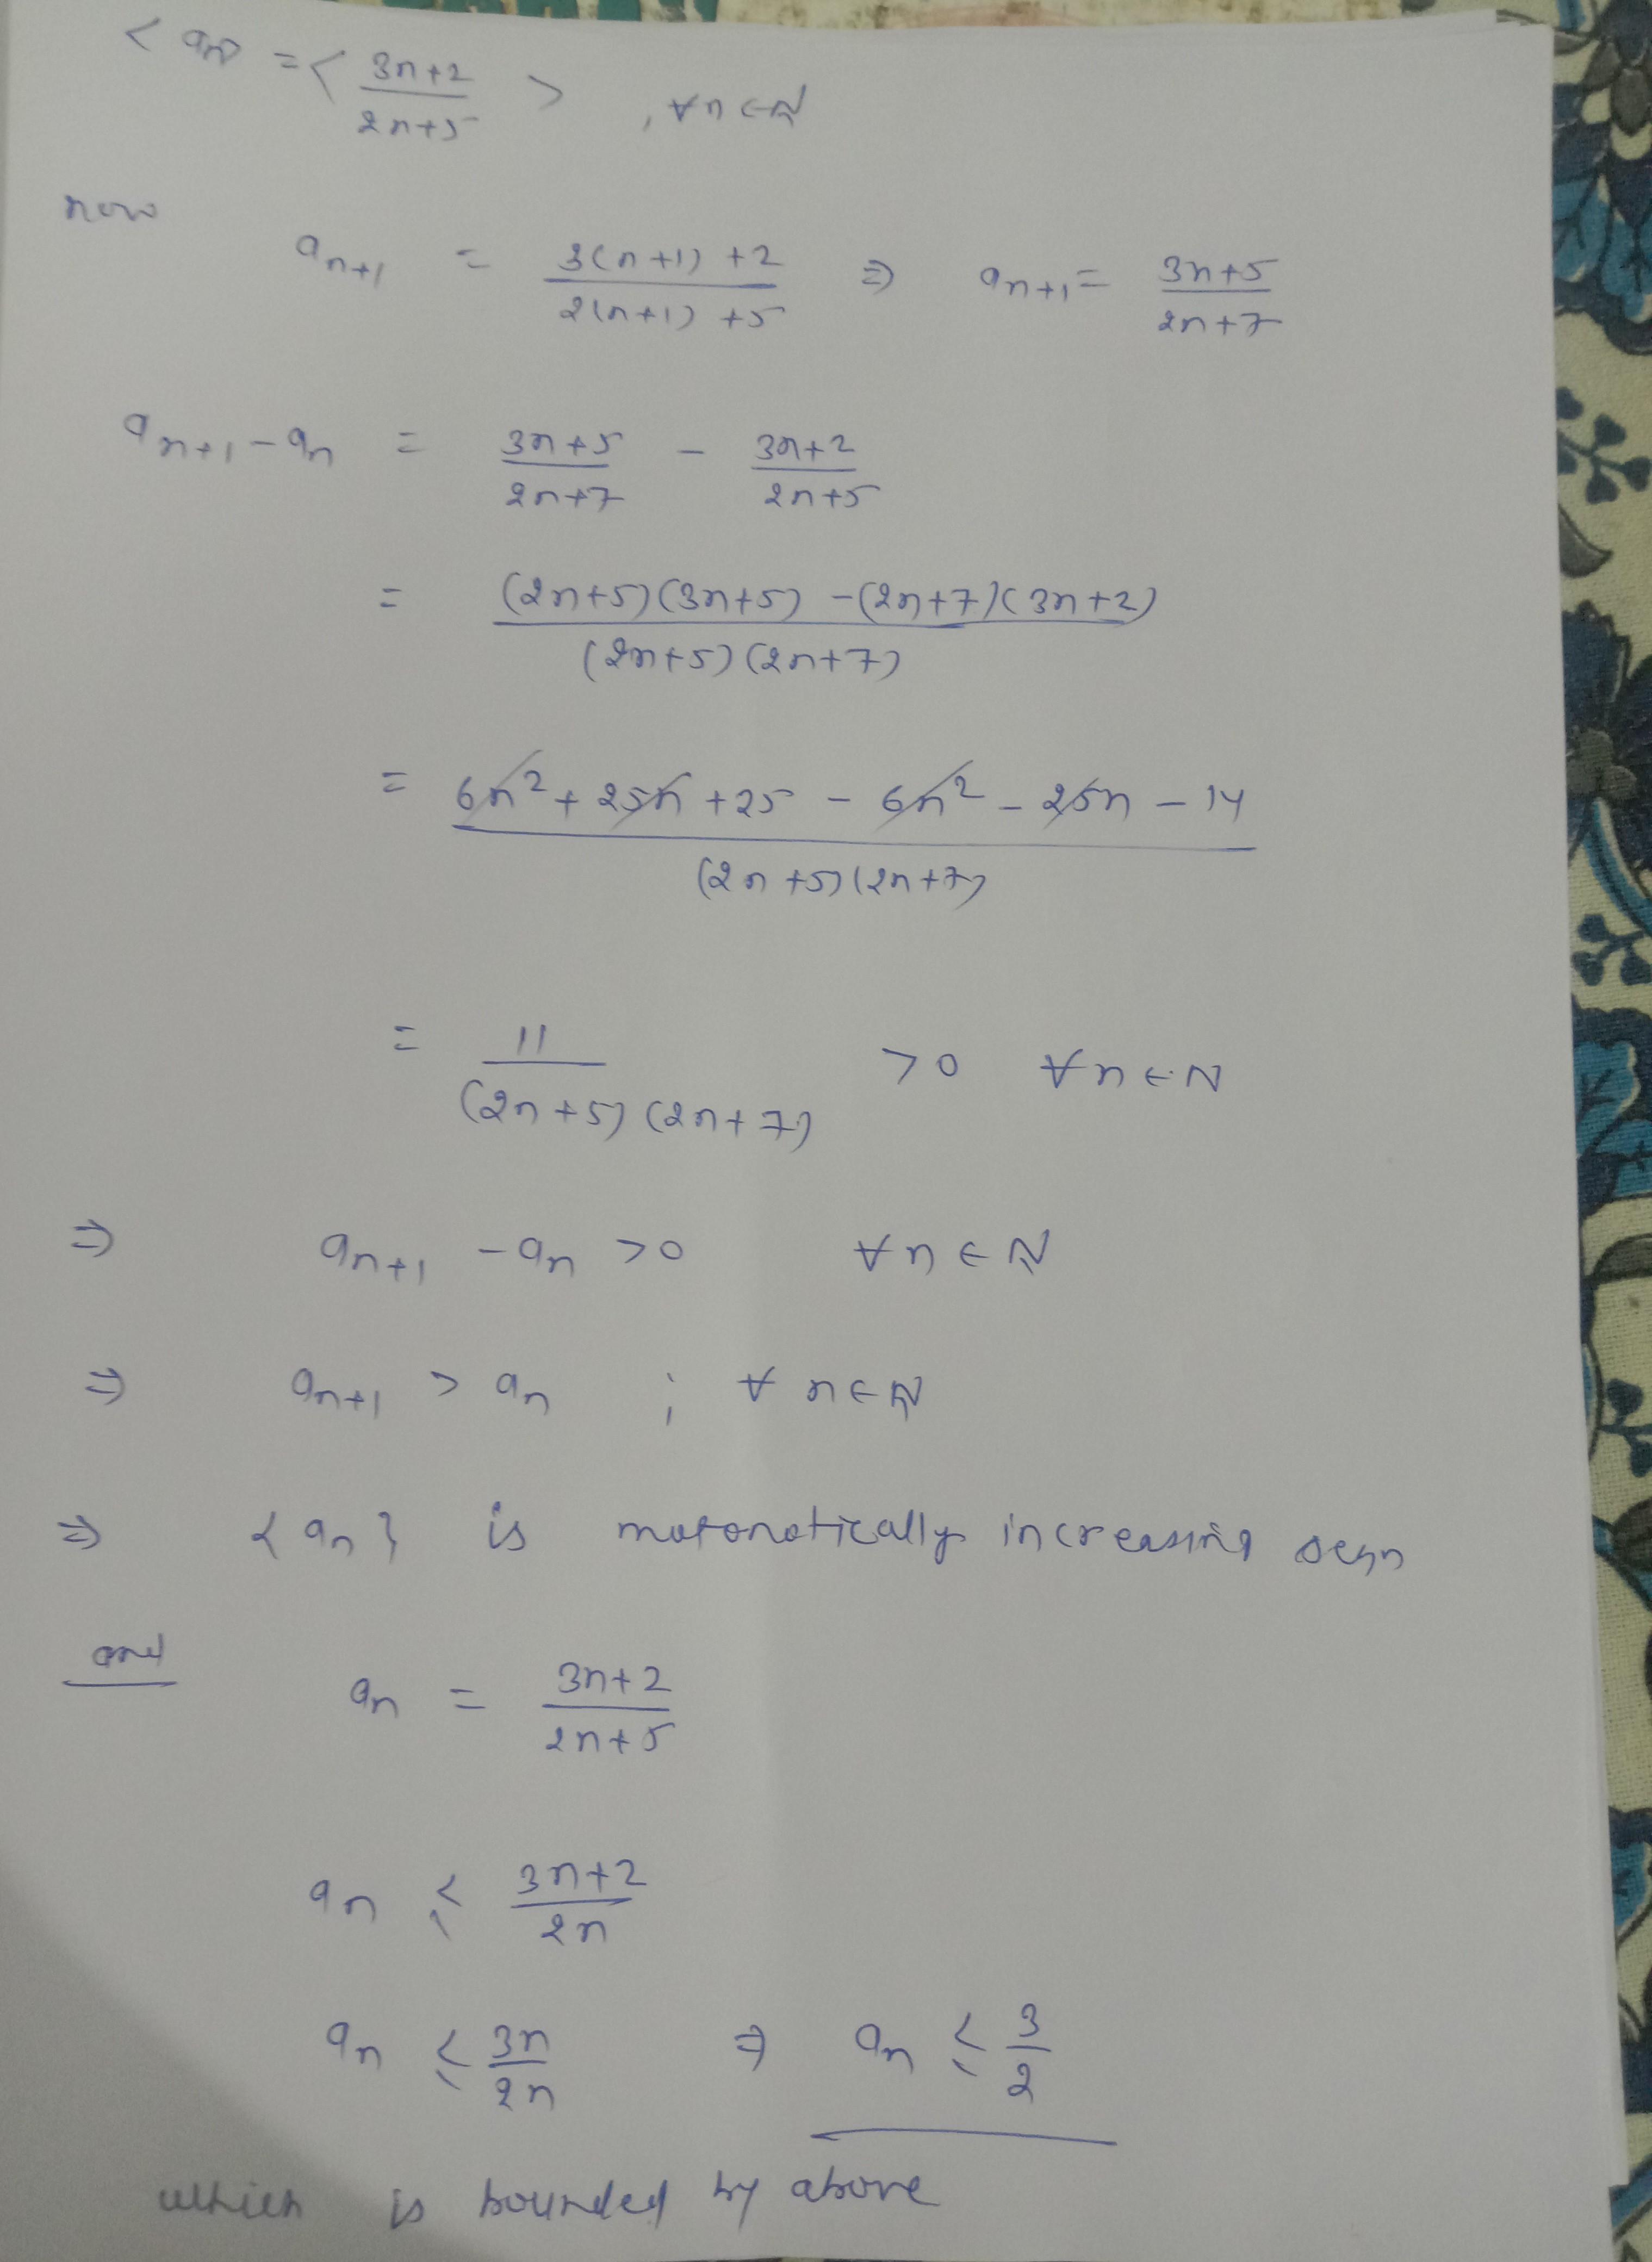 < an> = < 3n+2 / 2n+5 > , ∀n∈N
now
an+1 = 3(n+1) +2 / 2(n+1) +5 ⇒ an+1 = 3n+5 / 2n+7
an+1 - an = 3n+5 / 2n+7 - 3n+2 / 2n+5
= (2n+5)(3n+5) - (2n+7)(3n+2) / (2n+5)(2n+7)
= 6n² + 25n + 25 - 6n² - 25n - 14 / (2n+5)(2n+7)
= 11 / (2n+5)(2n+7) >0 ∀n∈N
⇒ an+1 - an >0 ∀n∈N
⇒ an+1 > an ; ∀ n∈N
⇒ {an} is motonotically increasing seqn
and an = 3n+2 / 2n+5
an ≤ 3n+2 / 2n
an ≤ 3n / 2n ⇒ an ≤ 3 / 2
which is bounded by above